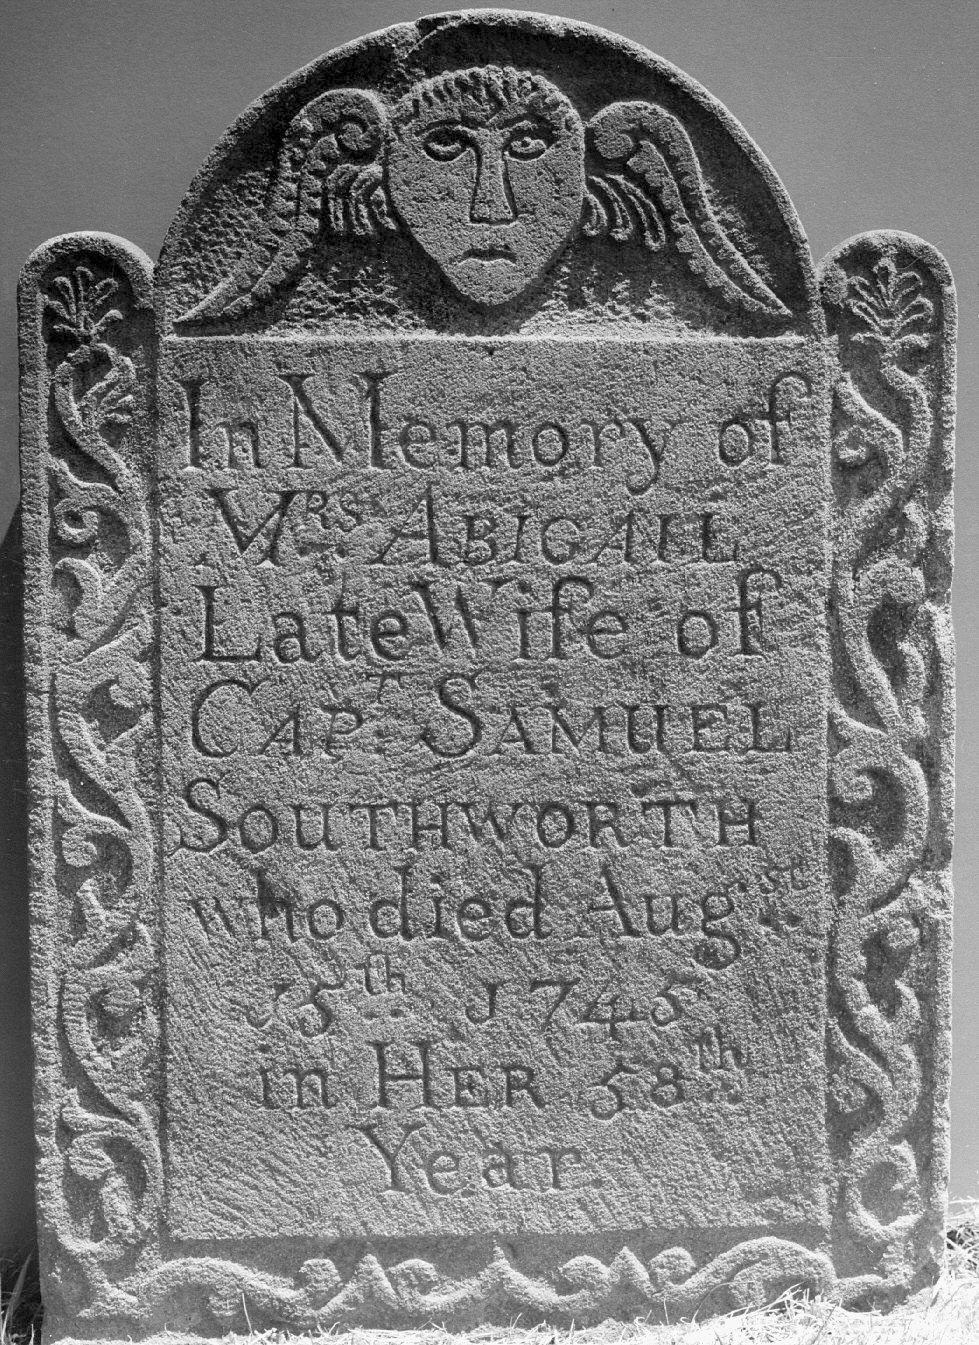 In Memory of
Mʳˢ ABIGAIL
Late Wife of
CAPᵀ SAMUEL
SOUTHWORTH
who died Augˢᵗ
15ᵗʰ 1745
in HER 58ᵗʰ
Year